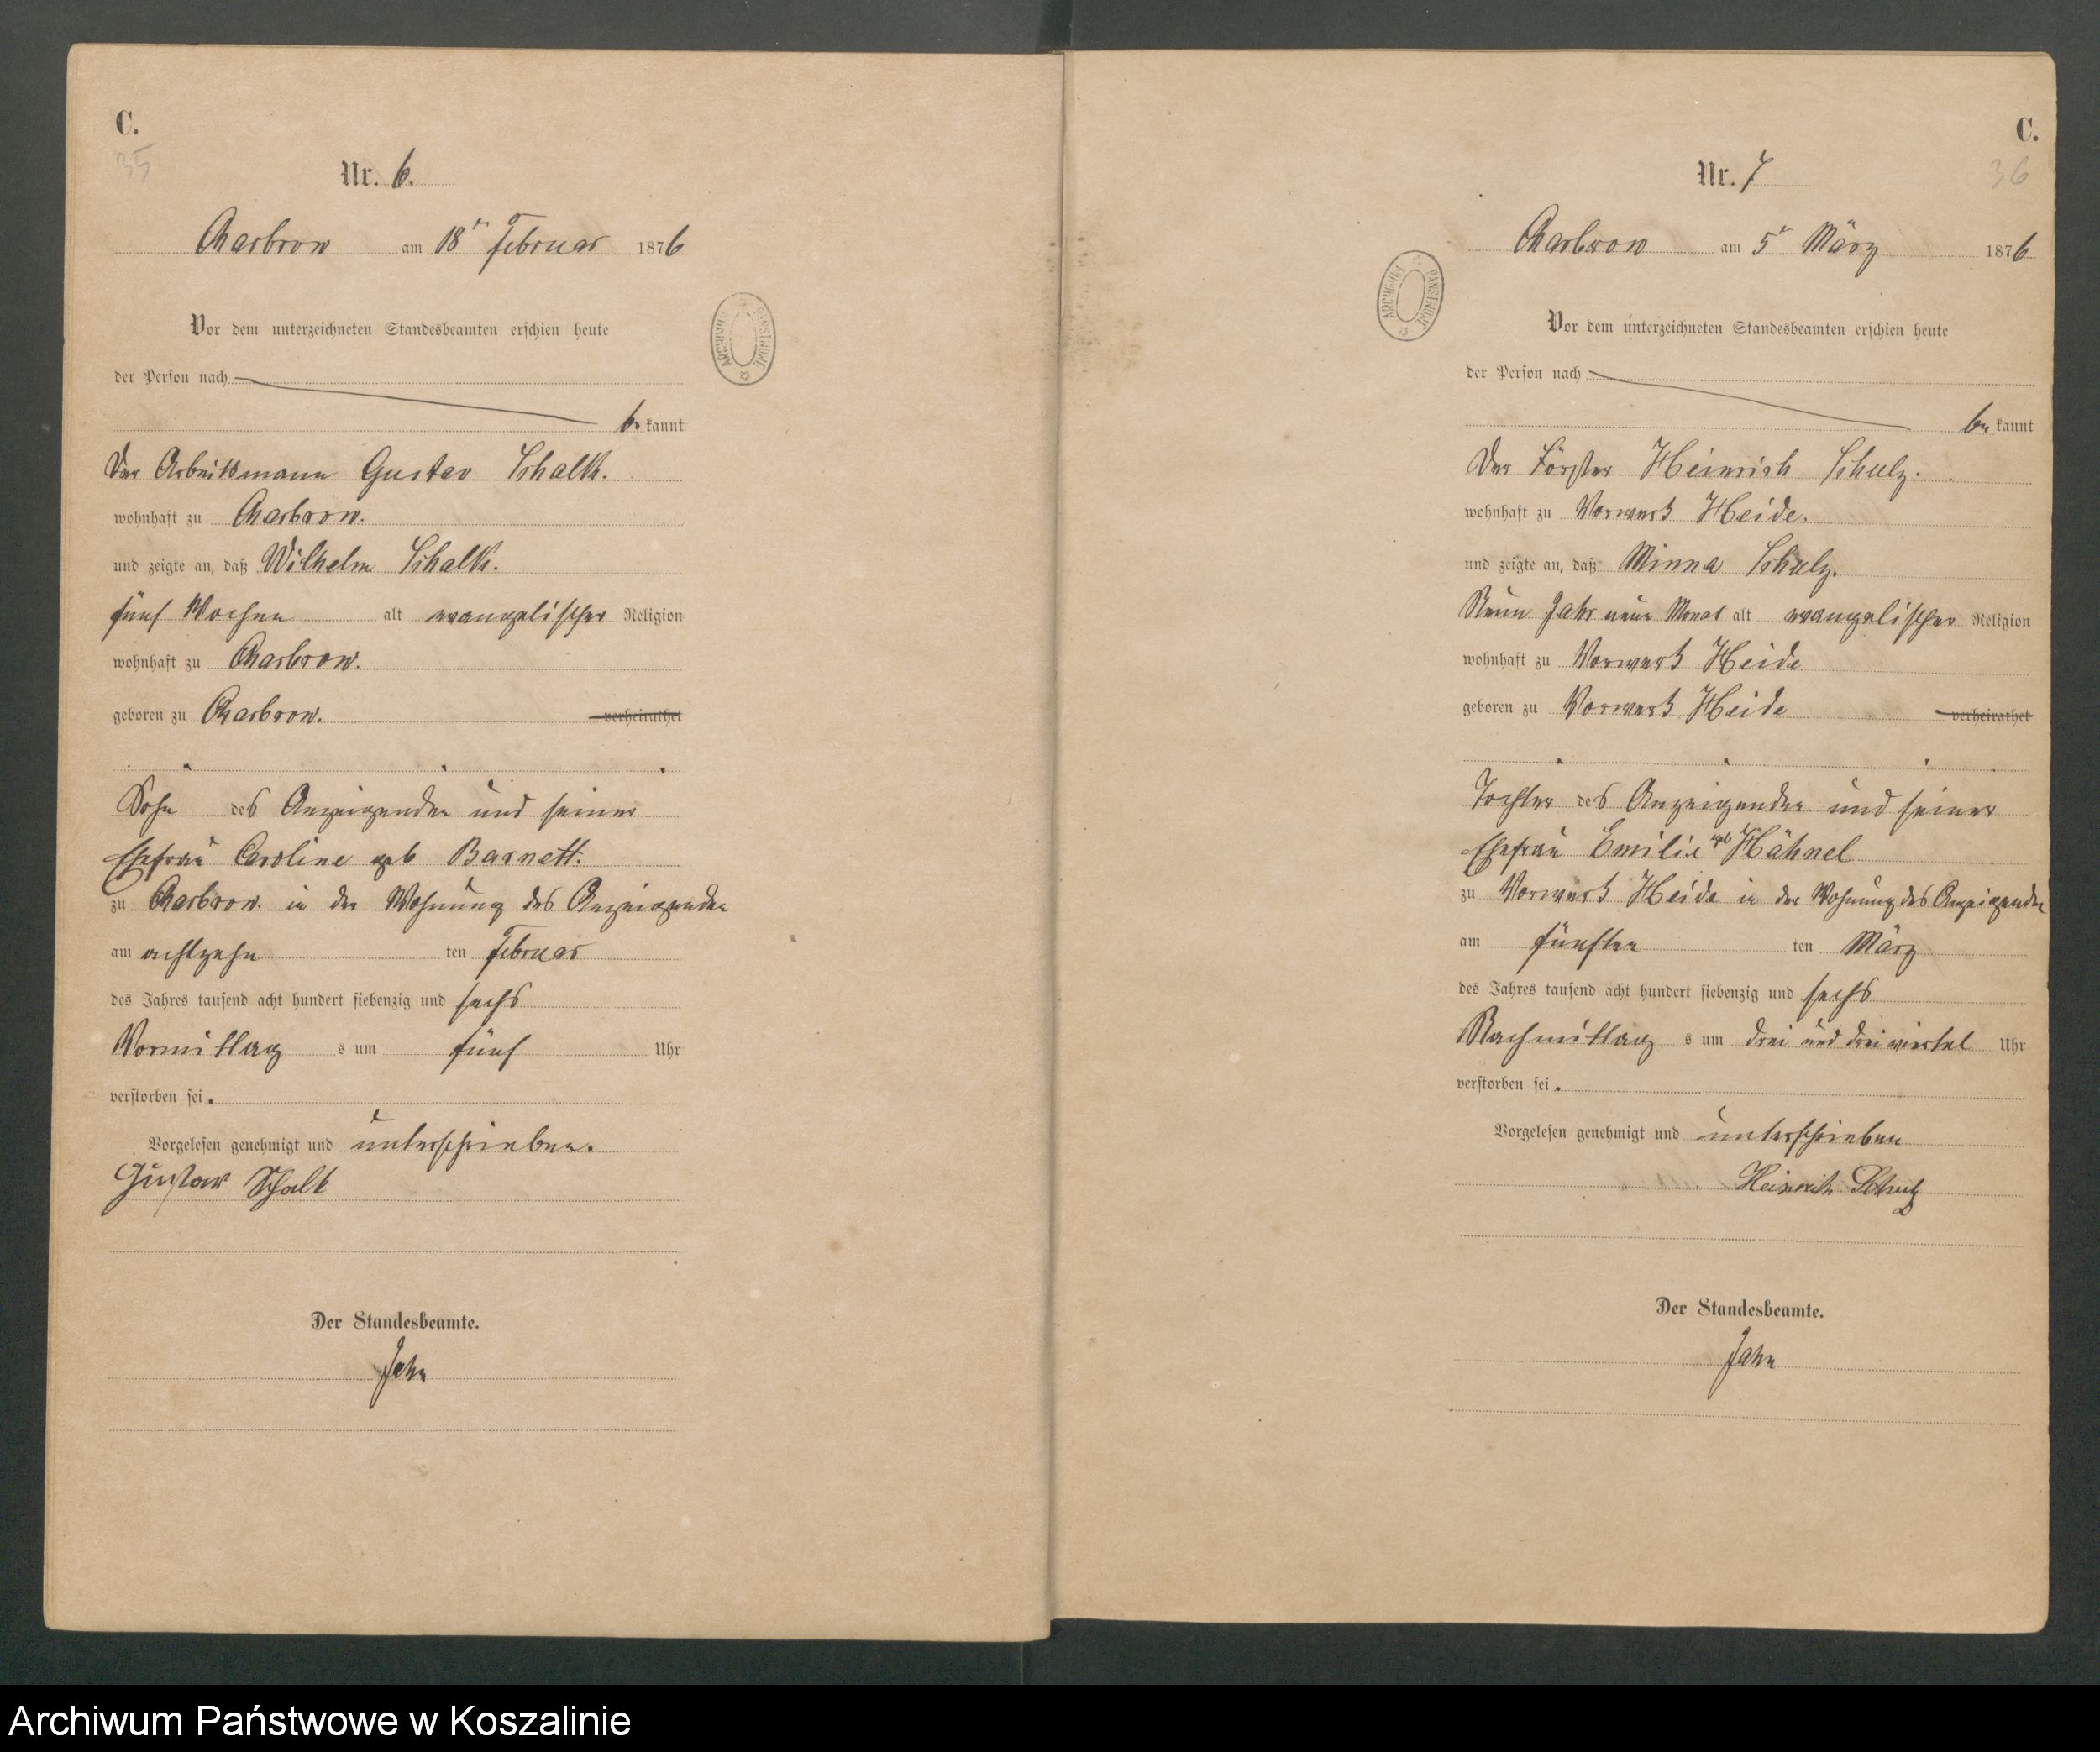 C.
35
Nr. 6.
Charbrow am 18ten Februar 1876
Vor dem unterzeichneten Standesbeamten erschien heute
der Person nach
be kannt
Der Arbeitsmann Gustav Schalk.
wohnhaft zu Charbrow.
und zeigte an, daß Wilhelm Schalk.
fünf Wochen alt evangelischer Religion
wohnhaft zu Charbrow.
geboren zu Charbrow. verheirathet
Sohn des Anzeigenden und seiner
Ehefrau Caroline geb Barnett.
zu Charbrow. in der Wohnung des Anzeigenden
am achtzehn ten Februar
des Jahres tausend acht hundert siebenzig und sechs
Vormittag s um fünf Uhr
verstorben sei.
Vorgelesen genehmigt und unterschrieben.
Gustav Schalk
Der Standesbeamte.
Jahn
ARCHIWUM PAŃSTWOWE
C.
36
Nr. 7
Charbrow am 5t März 1876
Vor dem unterzeichneten Standesbeamten erschien heute
der Person nach
be kannt
Der Förster Heinrich Schulz.
wohnhaft zu Vorwerk Heide.
und zeigte an, daß Minna Schulz.
Neun Jahr neun Monat alt evangelischer Religion
wohnhaft zu Vorwerk Heide
geboren zu Vorwerk Heide verheirathet
Tochter des Anzeigenden und seiner
Ehefrau Emilie geb Hähnel
zu Vorwerk Heide in der Wohnung des Anzeigenden
am fünften ten März
des Jahres tausend acht hundert siebenzig und sechs
Nachmittag s um drei und dreiviertel Uhr
verstorben sei.
Vorgelesen genehmigt und unterschrieben
Heinrich Schulz
Der Standesbeamte.
Jahn
ARCHIWUM PAŃSTWOWE
Archiwum Państwowe w Koszalinie